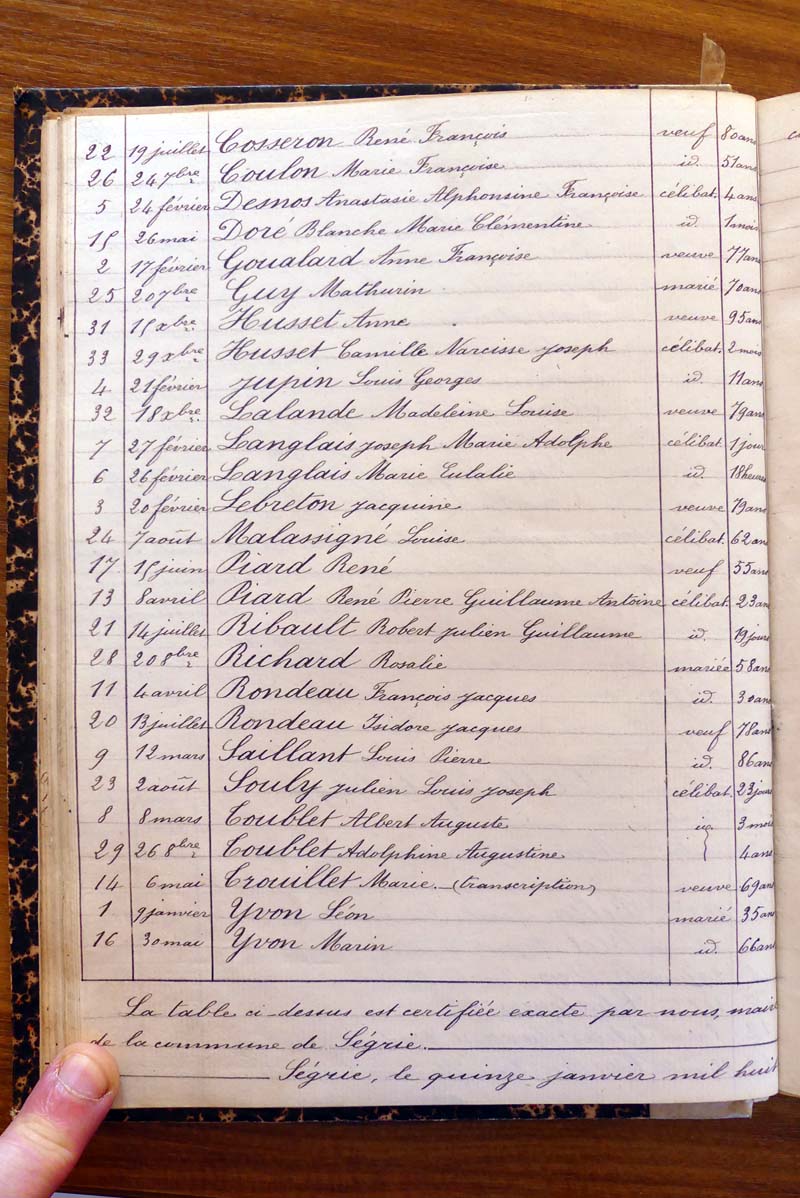 22 19 juillet Cosseron René François veuf 80 ans
26 24 7bre Coulon Marie Françoise id. 51 ans
5 24 février Desnos Anastasie Alphonsine Françoise célibat. 4 ans
15 26 mai Doré Blanche Marie Clémentine id. 1 mois
2 17 février Goualard Anne Françoise veuve 77 ans
25 20 7bre Guy Mathurin marié 70 ans
31 15 xbre Husset Anne veuve 95 ans
33 29 xbre Husset Camille Narcisse Joseph célibat. 2 mois
4 21 février Jupin Louis Georges id. 11 ans
32 18 xbre Lalande Madeleine Louise veuve 79 ans
7 27 février Langlais Joseph Marie Adolphe célibat 1 jour
6 26 février Langlais Marie Eulalie id. 18 heures
3 20 février Lebreton Jacquine veuve 79 ans
24 7 août Malassigné Louise célibat. 62 ans
17 15 juin Piard René veuf 55 ans
13 8 avril Piard René Pierre Guillaume Antoine célibat. 23 an
21 14 juillet Ribault Robert Julien Guillaume id. 19 jours
28 20 8bre Richard Rosalie mariée 58 ans
11 4 avril Rondeau François Jacques id. 30 ans
20 13 juillet Rondeau Isidore Jacques veuf 78 ans
9 12 mars Saillant Louis Pierre id. 86 ans
23 2 août Souly Julien Louis Joseph célibat. 23 jours
8 8 mars Toublet Albert Auguste id 3 mois
29 26 8bre Toublet Adolphine Augustine 4 ans
14 6 mai Trouillet Marie _ (transcription) veuve 69 ans
1 9 janvier Yvon Léon marié 35 ans
16 30 mai Yvon Marin id. 66 ans
La table ci-dessus est certifiée exacte par nous, maire
de la commune de Ségrie.
Ségrie, le quinze janvier mil huit